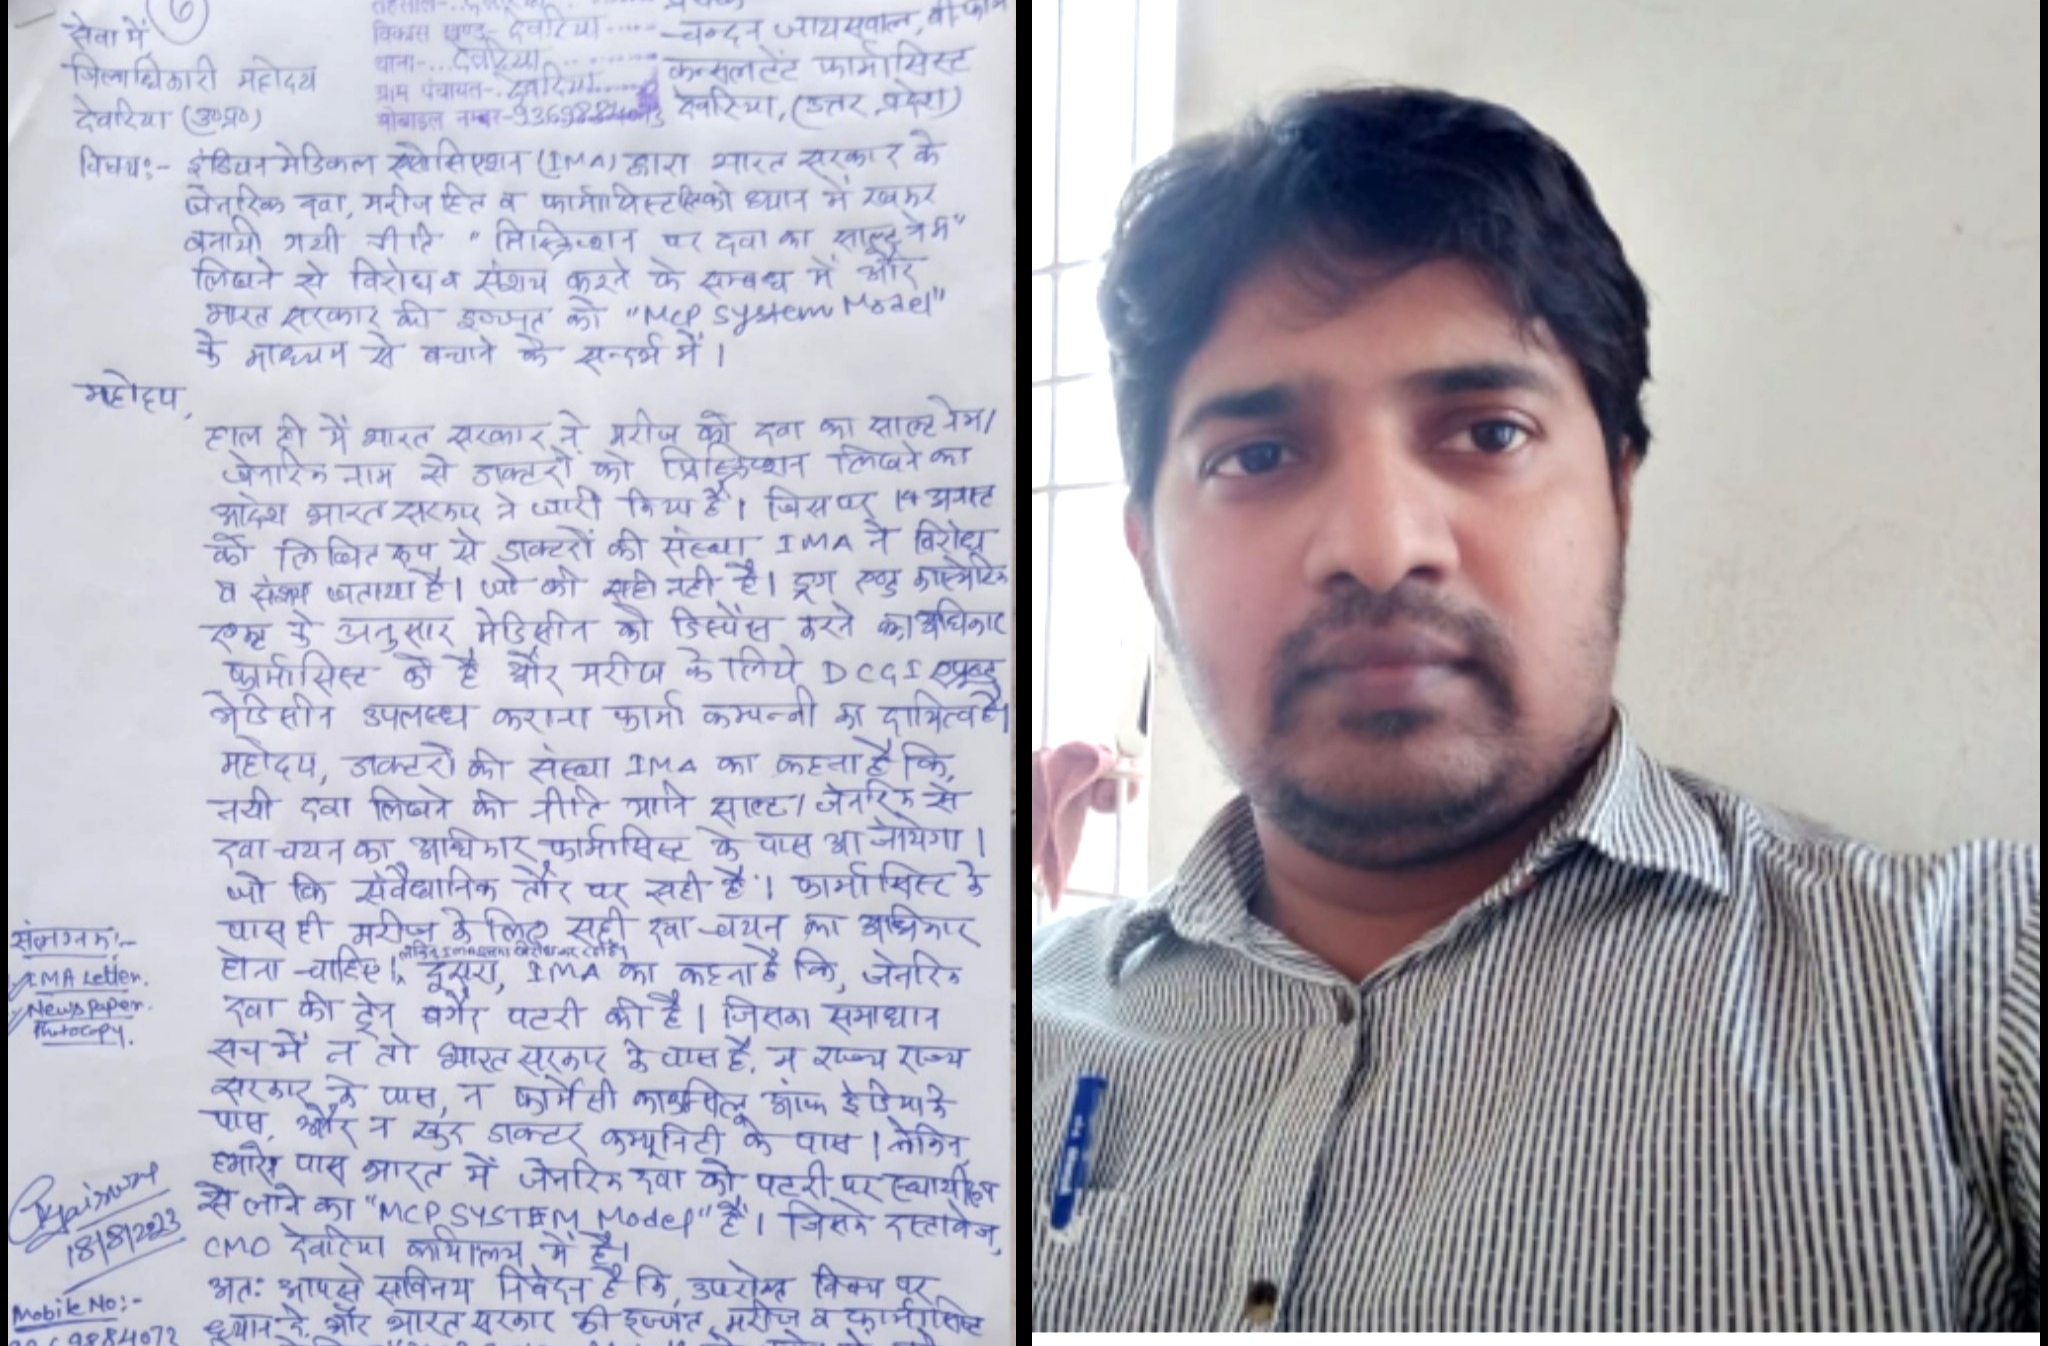 6
सेवा में,
जिलाधिकारी महोदय
देवरिया (उ०प्र०)
तहसील-
विकास खण्ड- देवरिया
थाना-...देवरिया
ग्राम पंचायत-. देवरिया
मोबाइल नम्बर-
चन्दन जायसवाल,
कन्सलटेंट फार्मासिस्ट
देवरिया, (उत्तर प्रदेश)
विषय:- इंडियन मेडिकल एसोसिएशन (IMA) द्वारा भारत सरकार के
जेनरिक दवा, मरीज हित व फार्मासिस्ट को ध्यान में रखकर
बनायी गयी नीति " प्रिस्क्रिप्शन पर दवा का साल्ट नेम"
लिखने से विरोध व संशय करने के सम्बंध में और
भारत सरकार की इज्जत को "MCP System Model"
के माध्यम से बचाने के सन्दर्भ में।
महोदय,
हाल ही में भारत सरकार ने मरीज को दवा का साल्ट नेम/
जेनरिक नाम से डाक्टरों को प्रिस्क्रिप्शन लिखने का
आदेश भारत सरकार ने जारी किया है। जिस पर 14 अगस्त
को लिखित रूप से डाक्टरों की संस्था IMA ने विरोध
व संशय जताया है। जो की सही नही है। ड्रग एण्ड कास्मेटिक
एक्ट के अनुसार मेडिसीन को डिस्पेंस करने का अधिकार
फार्मासिस्ट को है और मरीज के लिये DCGI एप्रूव्ड
मेडिसीन उपलब्ध कराना फार्मा कम्पनी का दायित्व है।
महोदय, डाक्टरों की संस्था IMA का कहना है कि,
नयी दवा लिखने की नीति यानि साल्ट/जेनरिक से
दवा चयन का अधिकार फार्मासिस्ट के पास आ जायेगा।
जो कि संवैधानिक तौर पर सही है। फार्मासिस्ट के
पास ही मरीज के लिए सही दवा चयन का अधिकार
होना चाहिए। दूसरा, IMA का कहना है कि, जेनरिक
दवा की ट्रेन बगैर पटरी की है। जिसका समाधान
सच में न तो भारत सरकार के पास है, न राज्य राज्य
सरकार के पास, न फार्मेसी काउन्सिल ऑफ इंडिया के
पास, और न खुद डाक्टर कम्यूनिटी के पास। लेकिन,
हमारे पास भारत में जेनरिक दवा को पटरी पर स्थायी रूप
से लाने का "MCP SYSTEM Model" है। जिसके दस्तावेज,
CMO देवरिया कार्यालय में है।
अतः आपसे सविनय निवेदन है कि, उपरोक्त विषय पर
ध्यान दे, और भारत सरकार की इज्जत, मरीज व फार्मासिस्ट
संलग्नक:-
IMA Letter.
Newspaper.
Photocopy.
18/8/2023
Mobile No:-